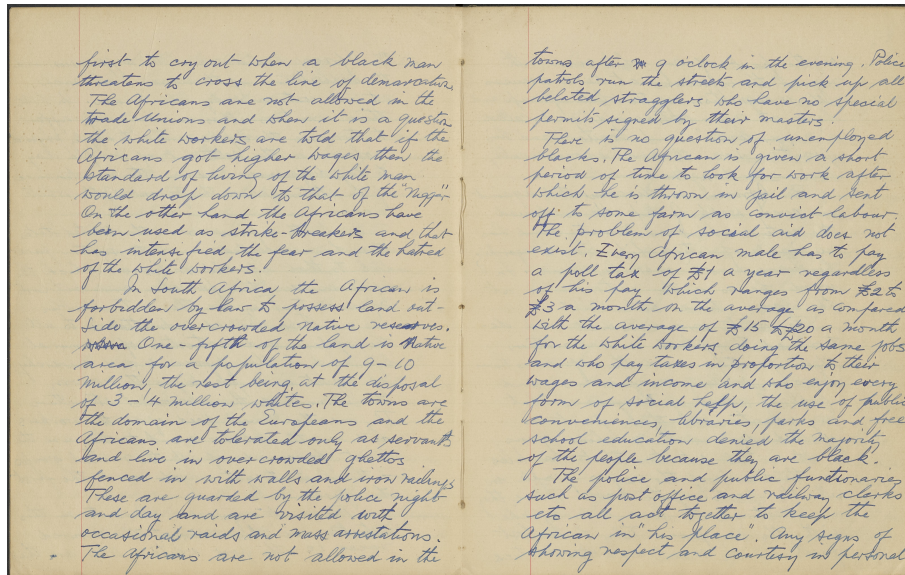 first to cry out when a black man
threatens to cross the line of demarcation.
The Africans are not allowed in the
trade Unions and when it is a question
the white workers are told that if the
Africans got higher wages then the
standard of living of the white man
would drop down to that of the "nigger"
On the other hand the Africans have
been used as strike-breakers and that
has intensified the fear and the hatred
of the white workers.
In South Africa the African is
forbidden by law to possess land out-
side the overcrowded native reserves.
One-fifth of the land is Native
area for a population of 9-10
million, the rest being at the disposal
of 3-4 million whites. The towns are
the domain of the Europeans and the
Africans are tolerated only as servants
and live in overcrowded ghettos
fenced in with walls and iron railings
These are guarded by the police night
and day and are visited with
occasional raids and mass arrestations.
The Africans are not allowed in the
towns after 9 o'clock in the evening. Police
patrols run the streets and pick up all
belated stragglers who have no special
permits signed by their masters.
There is no question of unemployed
blacks. The African is given a short
period of time to look for work after
which he is thrown in jail and sent
off to some farm as convict labour.
The problem of social aid does not
exist. Every African male has to pay
a poll tax of £1 a year regardless
of his pay which ranges from £2 to
£3 a month on the average as compared
with the average of £15 to £20 a month
for the white workers doing the same jobs
and who pay taxes in proportion to their
wages and income and who enjoy every
form of social help, the use of public
conveniences, libraries, parks and free
school education denied the majority
of the people because they are black.
The police and public functionaries
such as post office and railway clerks
etc all act together to keep the
African in "his place". Any signs of
showing respect and courtesy in personal